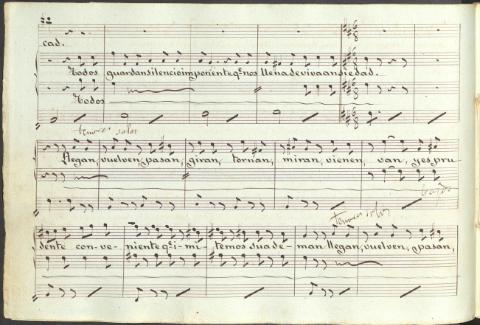 22
cad.
Todos guardan silencio imponente q.e nos llena de viva ansiedad.
Todos
tenores solos
llegan, vuelven, pasan, giran, tornan, miran, vienen, van, y es pru
dente con-ve-niente q.e i-mi-temos su ade-man llegan, vuelven, pasan,